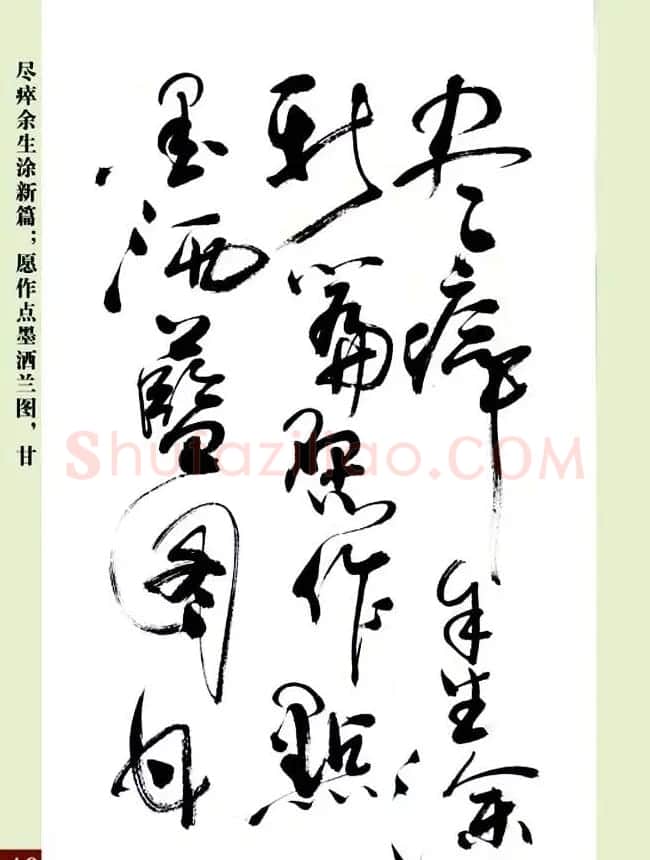 尽瘁余生涂
新篇愿作點
墨洒藍图甘
尽瘁余生涂新篇；愿作点墨洒兰图，甘
Shufaziliao.COM